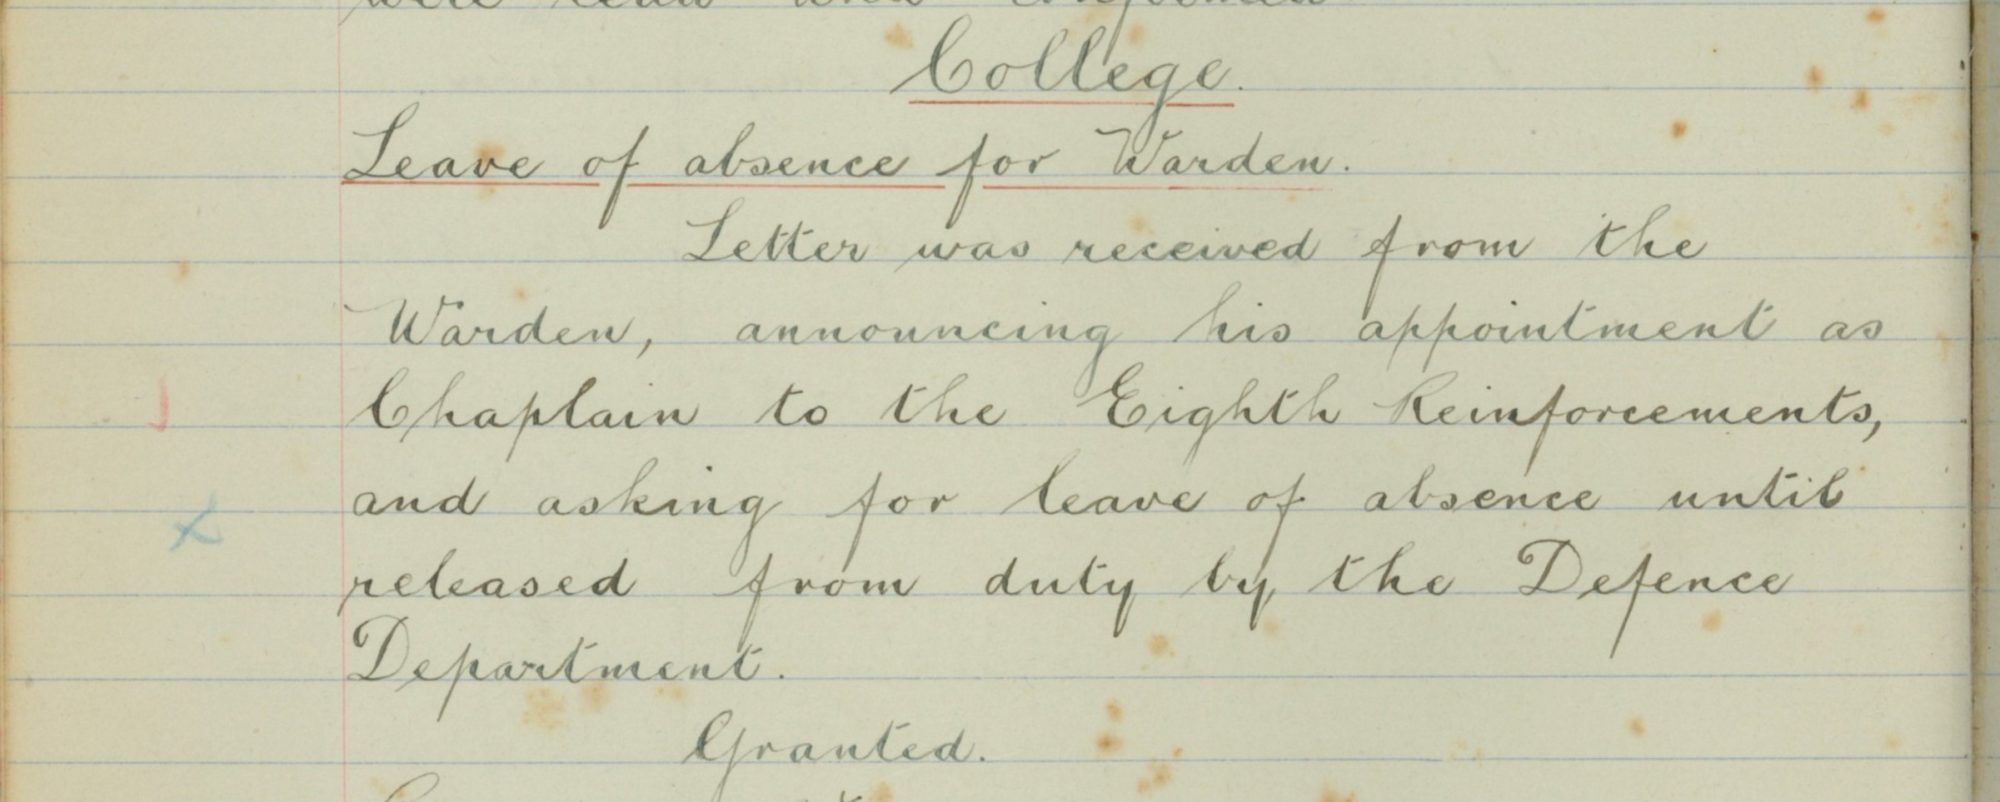 were read and confirmed
College.
Leave of absence for Warden.
Letter was received from the
Warden, announcing his appointment as
Chaplain to the Eighth Reinforcements,
and asking for leave of absence until
released from duty by the Defence
Department.
Granted.